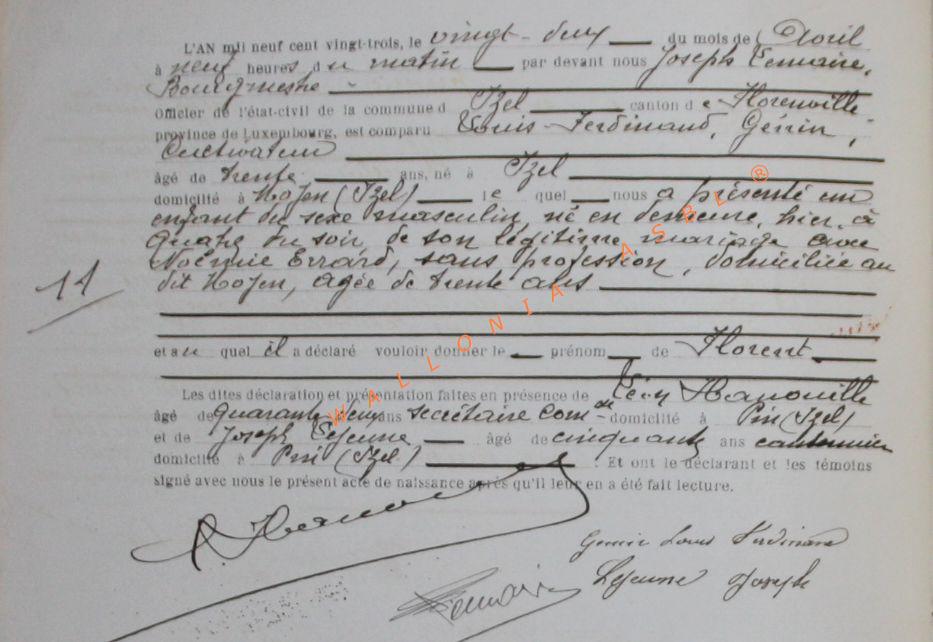 L'AN mil neuf cent vingt-trois, le vingt-deux du mois de Avril
à neuf heures du matin par devant nous Joseph Lemaire,
Bourgmestre
Officier de l'état-civil de la commune d Izel canton de Florenville
province de Luxembourg, est comparu Louis-Ferdinand, Génin,
Cultivateur
âgé de trente ans, né à Izel
domicilié à Moyen (Izel) le quel nous a présenté un
enfant du sexe masculin, né en demeure, hier, à
quatre du soir, de son légitime mariage avec
Noémie Errard, sans profession, domiciliée au
dit Moyen, agée de trente ans
11
et au quel il a déclaré vouloir donner le prénom de Florent
Les dites déclaration et présentation faites en présence de Hanouille
âgé de quarante deux ans secrétaire com domicilié à Pin (Izel)
et de Joseph Lejeune âgé de cinquante ans cantonnier
domicilié à Pin (Izel) . Et ont le déclarant et les témoins
signé avec nous le présent acte de naissance après qu'il leur en a été fait lecture.
Genin Louis Ferdinand
Lejeune Joseph
Lemaire
WALLONIA ASBL ®